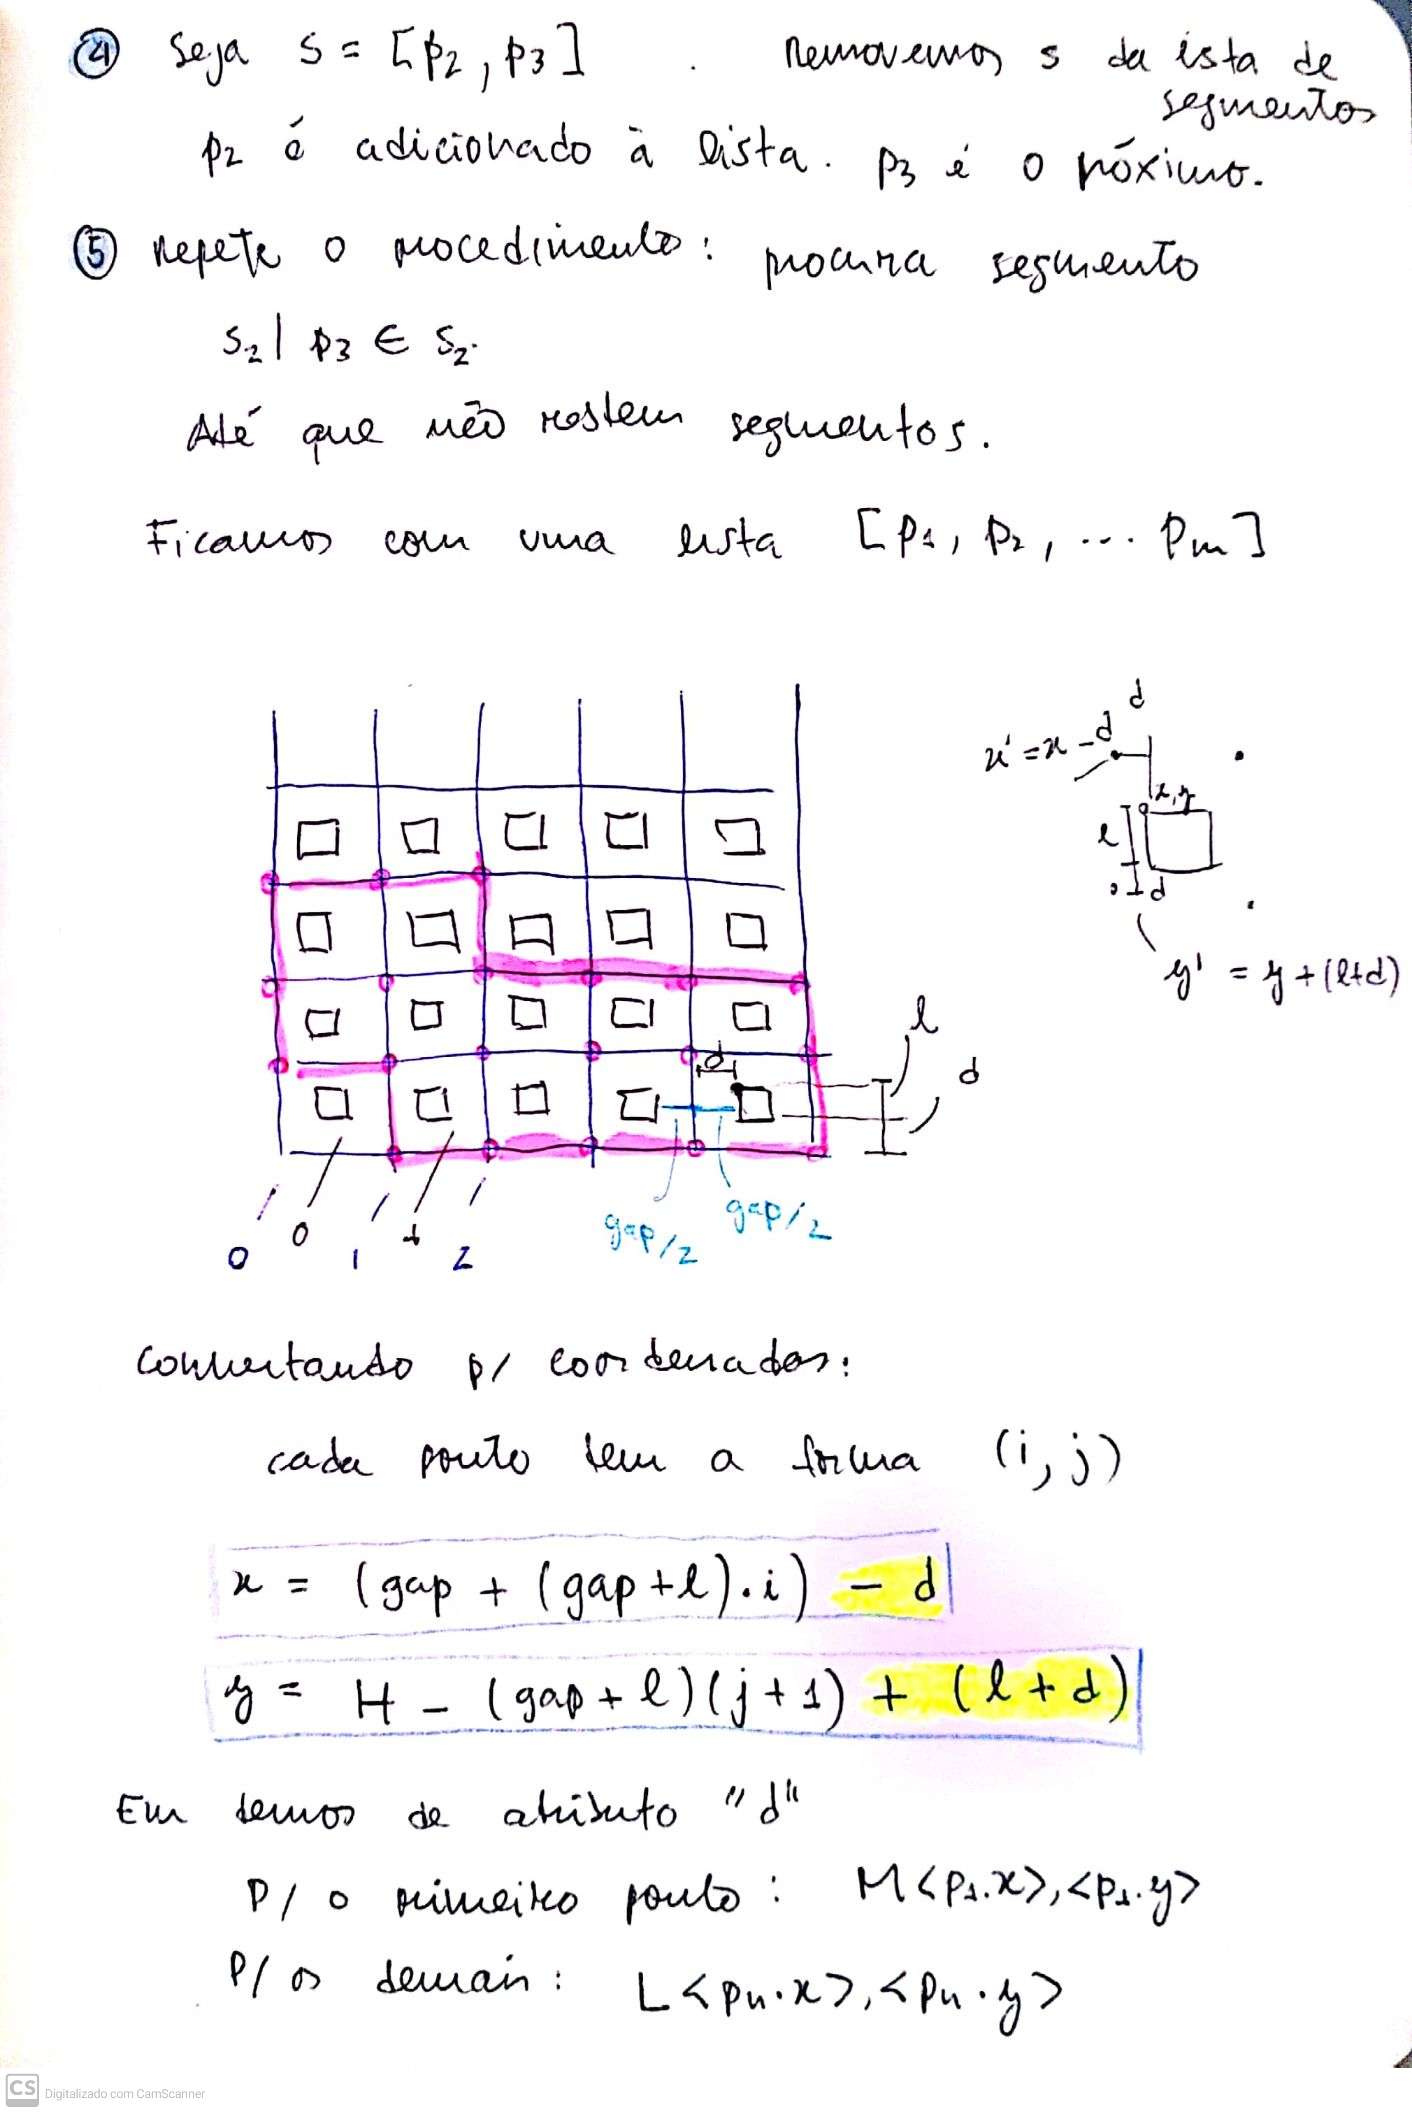 ④ Seja S = [p2, p3] . Removemos s da lista de
segmentos
p2 é adicionado à lista. p3 é o próximo.
⑤ Repete o procedimento: procura segmento
S2 | p3 ∈ S2.
Até que não restem segmentos.
Ficamos com uma lista [p1, p2, ... pm]
d
x' = x - d
x, y
l
d
y' = y + (l+d)
l
d
d
gap/2
gap/2
0 1
0 1 2
Convertando p/ coordenadas:
cada ponto tem a forma (i, j)
x = (gap + (gap + l).i) - d
y = H - (gap + l)(j + 1) + (l + d)
Em termos de atributo "d"
P/ o primeiro ponto: M<p1.x>,<p1.y>
P/ os demais: L<pn.x>,<pn.y>
CS Digitalizado com CamScanner